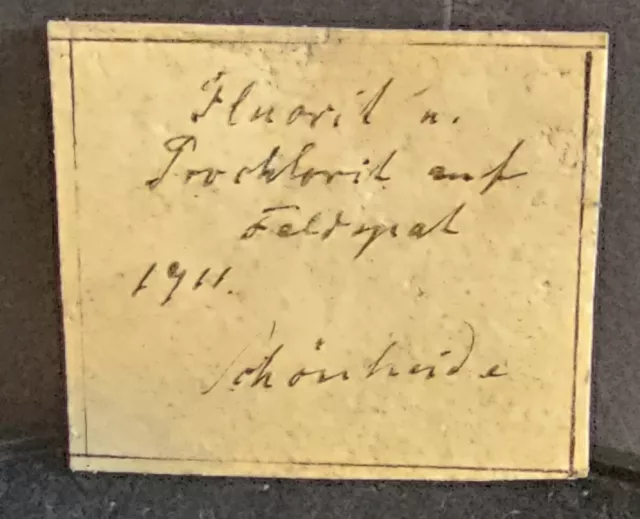 Fluorit u.
Prochlorit auf
Feldspat
1911.
Schönheide